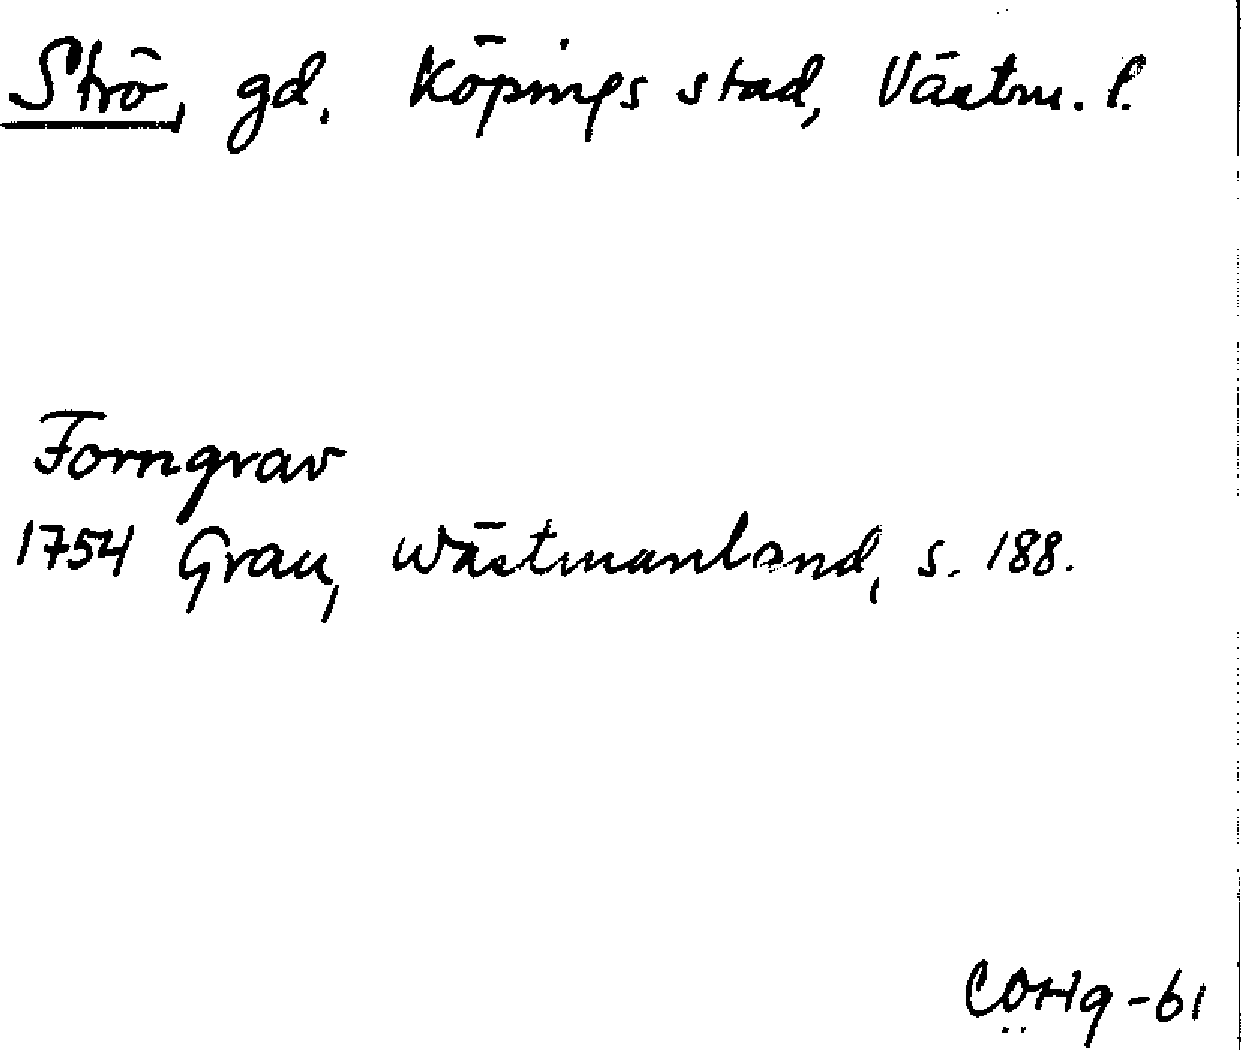 Strö, gd. Köpings stad, Västm. l.
Forngrav
1754 Grau, Wästmanland, s. 188.
CÖHg-61